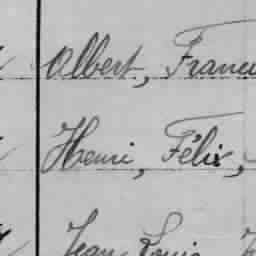 Albert, Franc
Henri, Félix,
Jean, Louis,